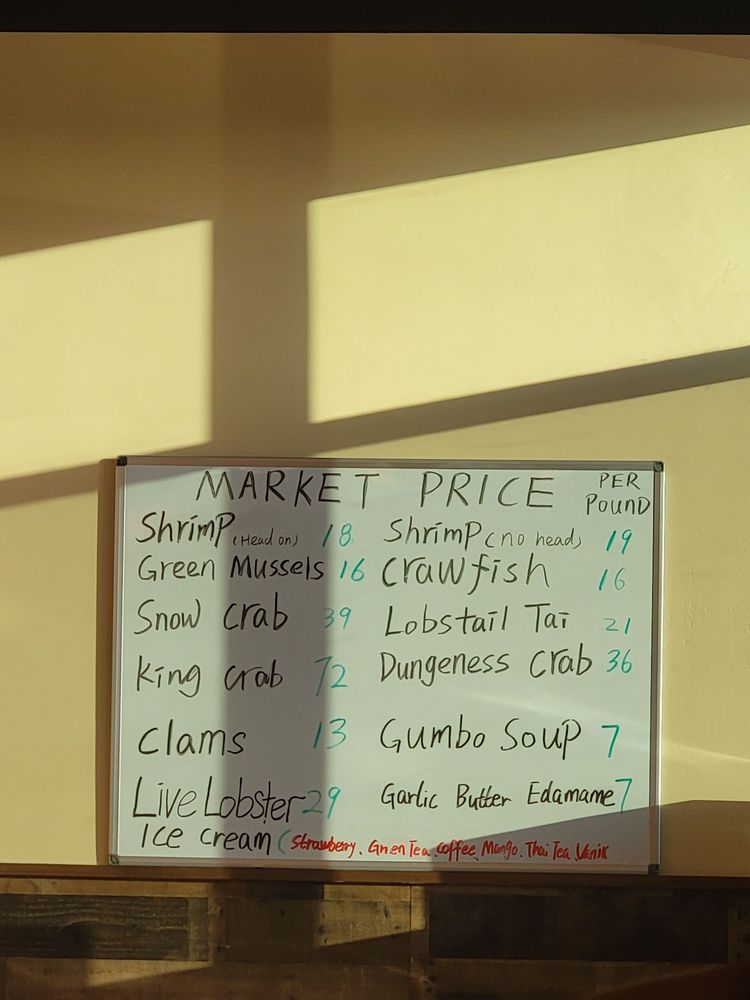 MARKET PRICE PER POUND
Shrimp (Head on) 18 Shrimp (no head) 19
Green Mussels 16 Crawfish 16
Snow crab 39 Lobstail Tai 21
King crab 72 Dungeness Crab 36
Clams 13 Gumbo Soup 7
Live Lobster 29 Garlic Butter Edamame 7
Ice cream (Strawberry, Green Tea, Coffee, Mango, Thai Tea,